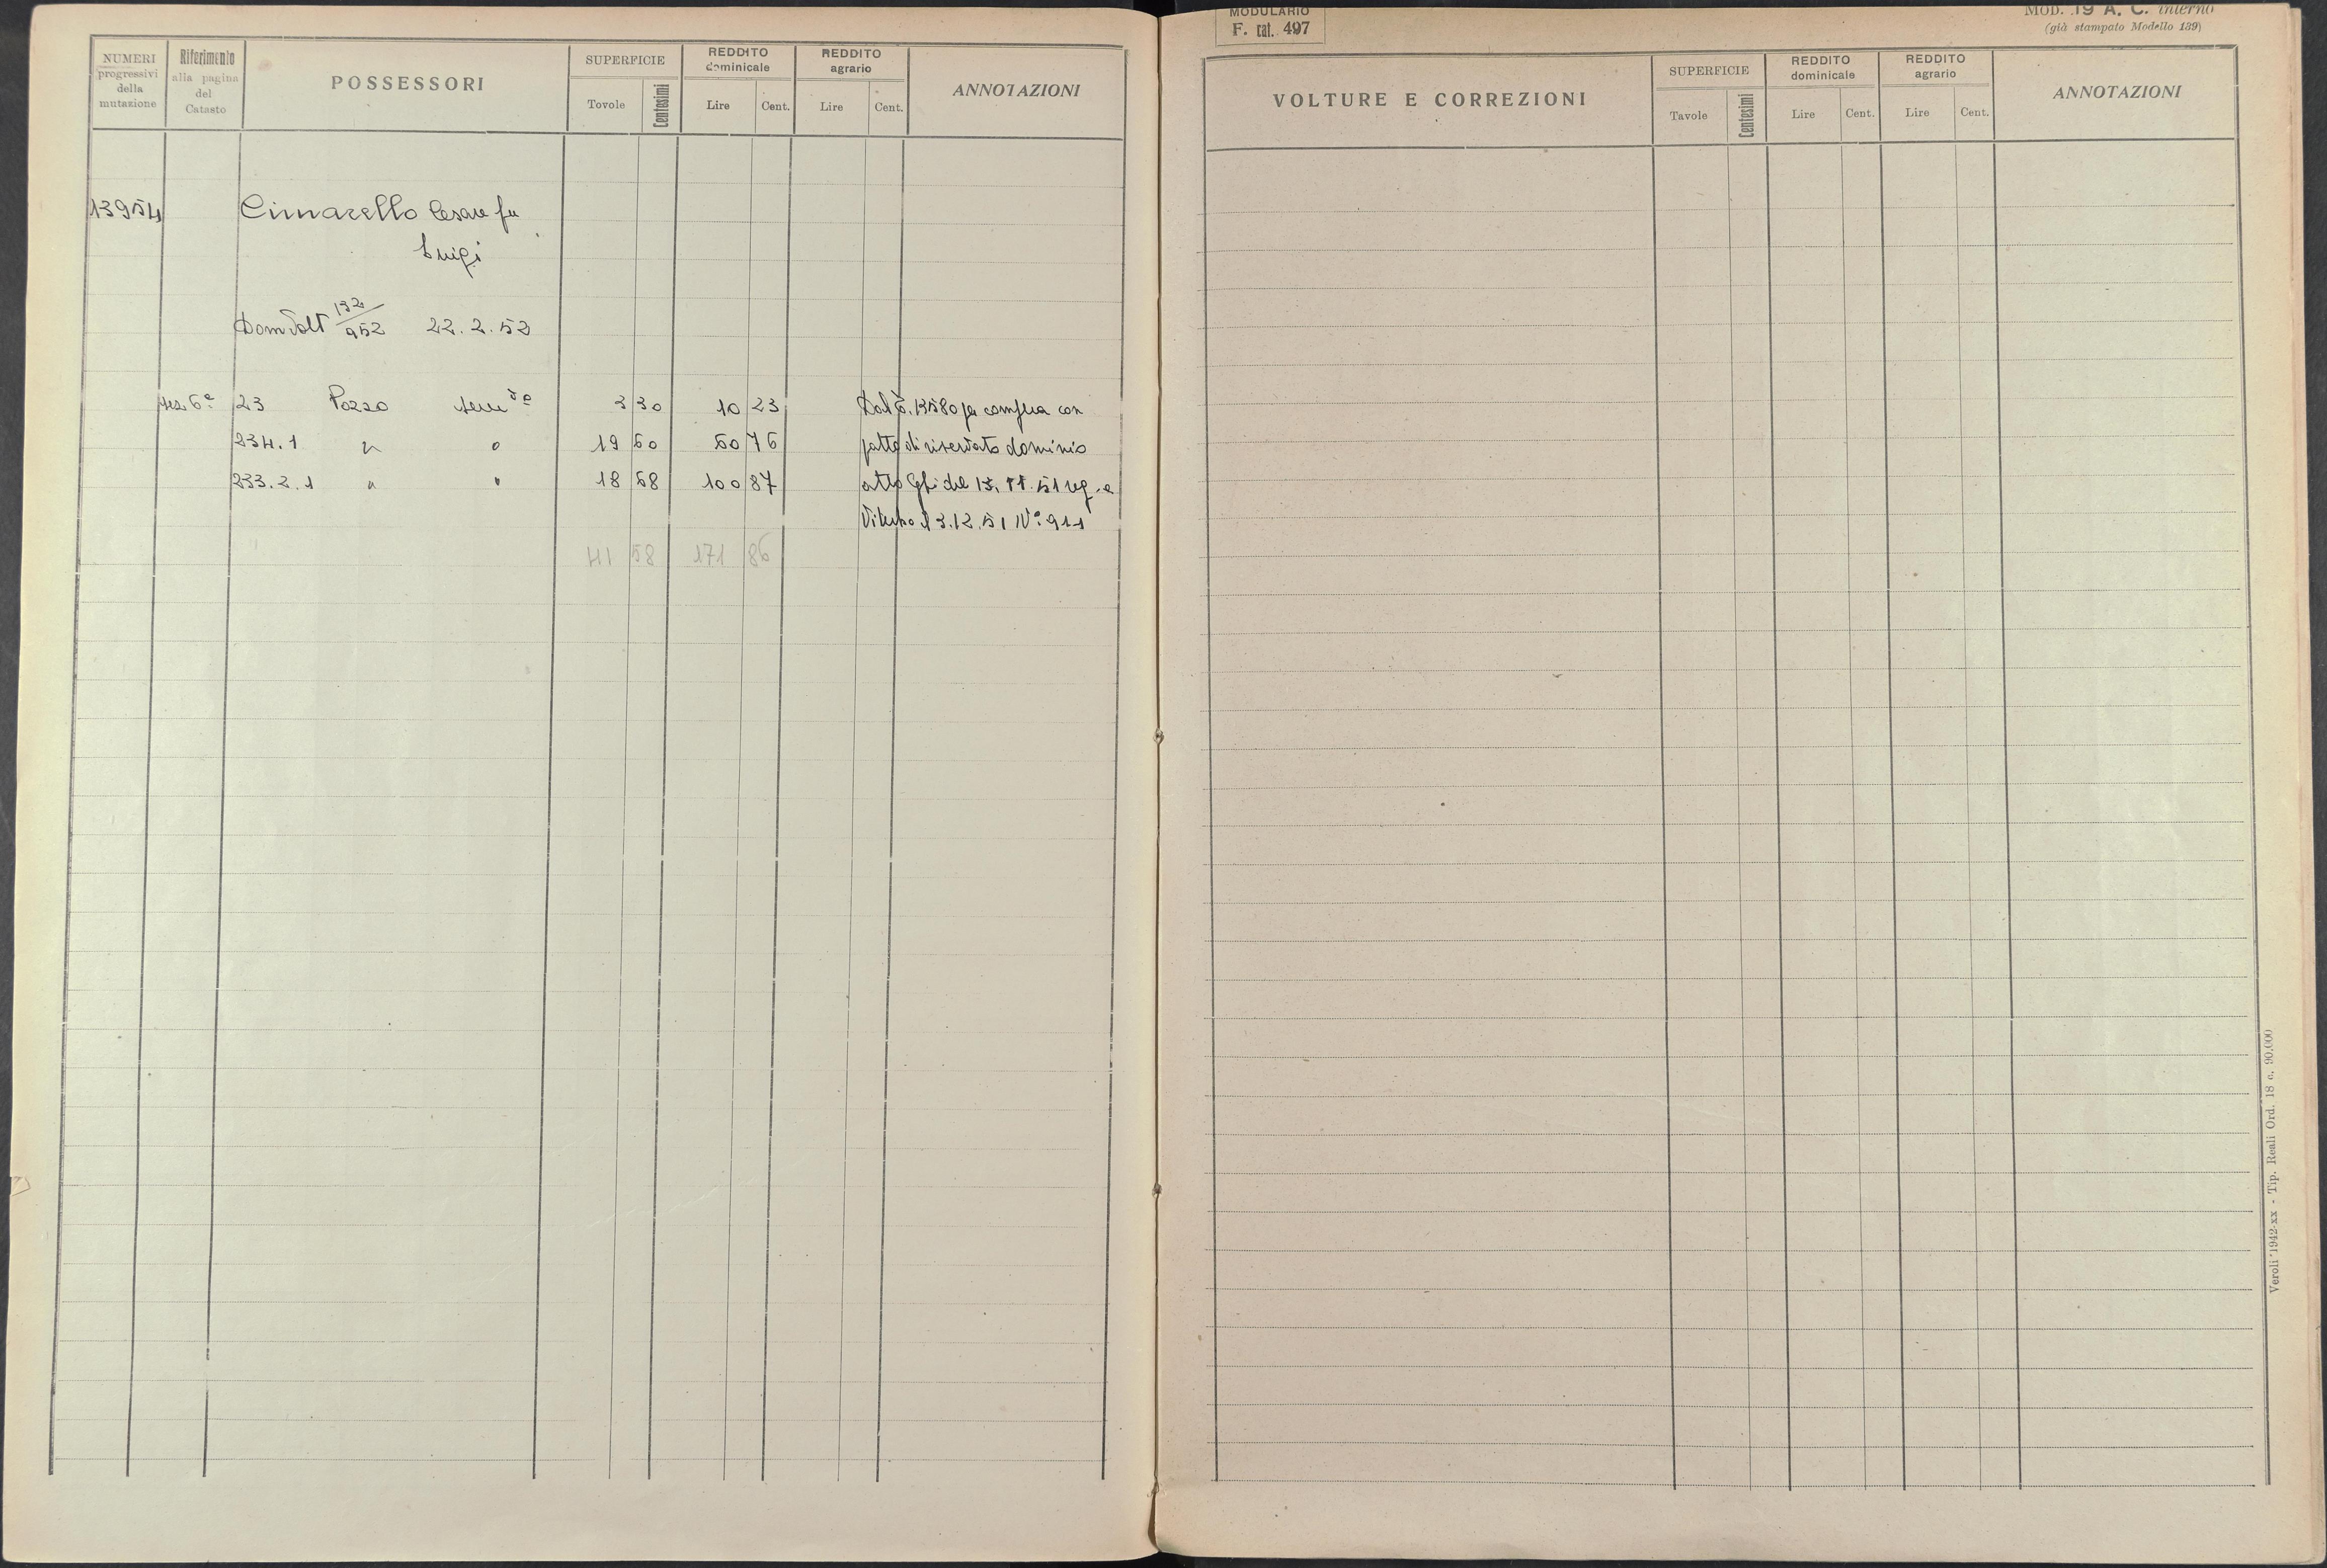 NUMERI progressivi della mutazione
Riferimento alla pagina del Catasto
POSSESSORI
SUPERFICIE
Tovole
Centesimi
REDDITO dominicale
Lire
Cent.
REDDITO agrario
Lire
Cent.
ANNOTAZIONI
13954 Cimarello Cesare fu
Luigi
DomVolt 132/952 22.2.52
sez 6ª 23 Pozzo sem 3 30 10 23 Dal 13580 per compra con
234.1 " " 19 60 60 76 patto di riservato dominio
233.2.1 " " 18 68 100 87 atto del 51 reg. a
Viterbo il 3.12.51 Nº 911
41 58 171 86
MODULARIO
F. cat. 497
MOD. 19 A. C. interno
(già stampato Modello 139)
VOLTURE E CORREZIONI
SUPERFICIE
Tavole
Centesimi
REDDITO dominicale
Lire
Cent.
REDDITO agrario
Lire
Cent.
ANNOTAZIONI
Veroli 1942-xx - Tip. Reali Ord. 18 c. 90.000